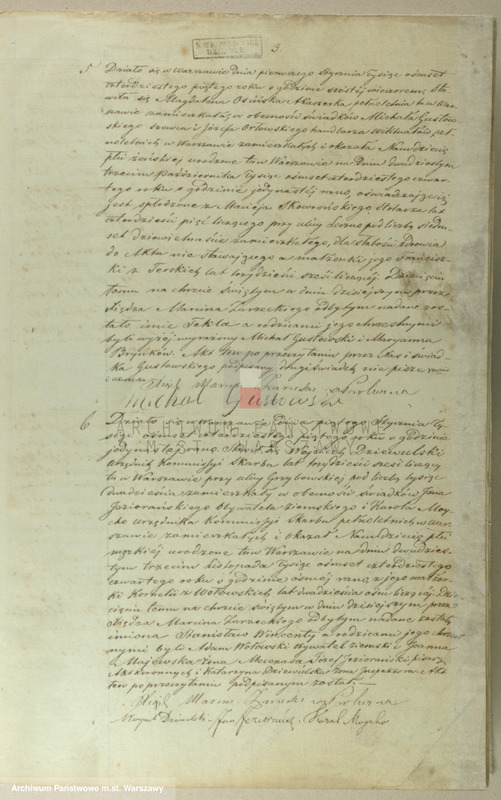 3.
5 Działo się w Warszawie dnia pierwszego Stycznia tysiąc ośmset
czterdziestego piątego roku o godzinie szóstej wieczorem. Sta
wiła się Magdalena Osińska Akuszerka pełnoletnia tu w War
szawie zamieszkała, w obecności świadków Michała Gustow
skiego szewca i Józefa Orłowskiego handlarza Wiktuałów peł
noletnich w Warszawie zamieszkałych i okazała Nam dziecię
płci żeńskiej urodzone tu w Warszawie na dniu dwudziestym
trzecim Października tysiąc ośmset czterdziestego czwar
tego roku o godzinie jedynastej rano, oświadczając iż
jest spłodzone z Macieja Skoworońskiego Stolarza lat
czterdzieści pięć liczącego przy ulicy Leszno pod liczbą siedm
set dziewiętnaście zamieszkałego, dla słabości zdrowia
do Aktu nie stawającego a małżonki jego Francisz
ki z Terskich lat trzydzieści sześć liczącej. Dziecięciu
temu na chrzcie świętym w dniu dzisiejszym przez
Księdza Marcina Zarzeckiego odbytym nadane zos
tało imie Tekla a rodzicami jego chrzestnymi
byli wyżej wyrażony Michał Gustowski i Maryanna
Akt ten po przeczytaniu przez Nas i świad
ka Gustowskiego podpisany drugi świadek nie pisze
Michał Gustowski
ARCHIWUM PAŃSTWOWE
W WARSZAWIE
6 Działo się w Warszawie dnia piątego Stycznia ty
siąc ośmset czterdziestego piątego roku o godzinie
jedynastej rano. Stawił się Wojciech Dziewulski
Urzędnik Kommissyi Skarbu lat trzydzieści sześć liczący
tu w Warszawie przy ulicy Grzybowskiej pod liczbą tysiąc
dwadzieścia zamieszkały w obecności świadków Jana
Jeziorańskiego Obywatela ziemskiego i Karola Moy
cho urzędnika Kommissyi Skarbu pełnoletnich w War
szawie zamieszkałych i okazał Nam dziecię płci
męzkiej urodzone tu w Warszawie na dniu dwudzies
tym trzecim Listopada tysiąc ośmset czterdziestego
czwartego roku o godzinie ósmej rano z jego małżon
ki Kornelii z Wołowskich lat dwadzieścia ośm liczącej. Dzie
cięciu temu na chrzcie świętym w dniu dzisiejszym przez
Księdza Marcina Zarzeckiego odbytym nadane zostały
imiona Stanisław Wincenty a rodzicami jego chrzes
tnymi byli Adam Wołowski Obywatel ziemski i Joanna
Majewska żona Mecenasa Józef Jeziorański pisarz
Akt koronnych i Katarzyna Dziewulska żona Inspektora. Akt
ten po przeczytaniu podpisanym został.
Jan Jeziorański Karol Moycho
Archiwum Państwowe m.st. Warszawy